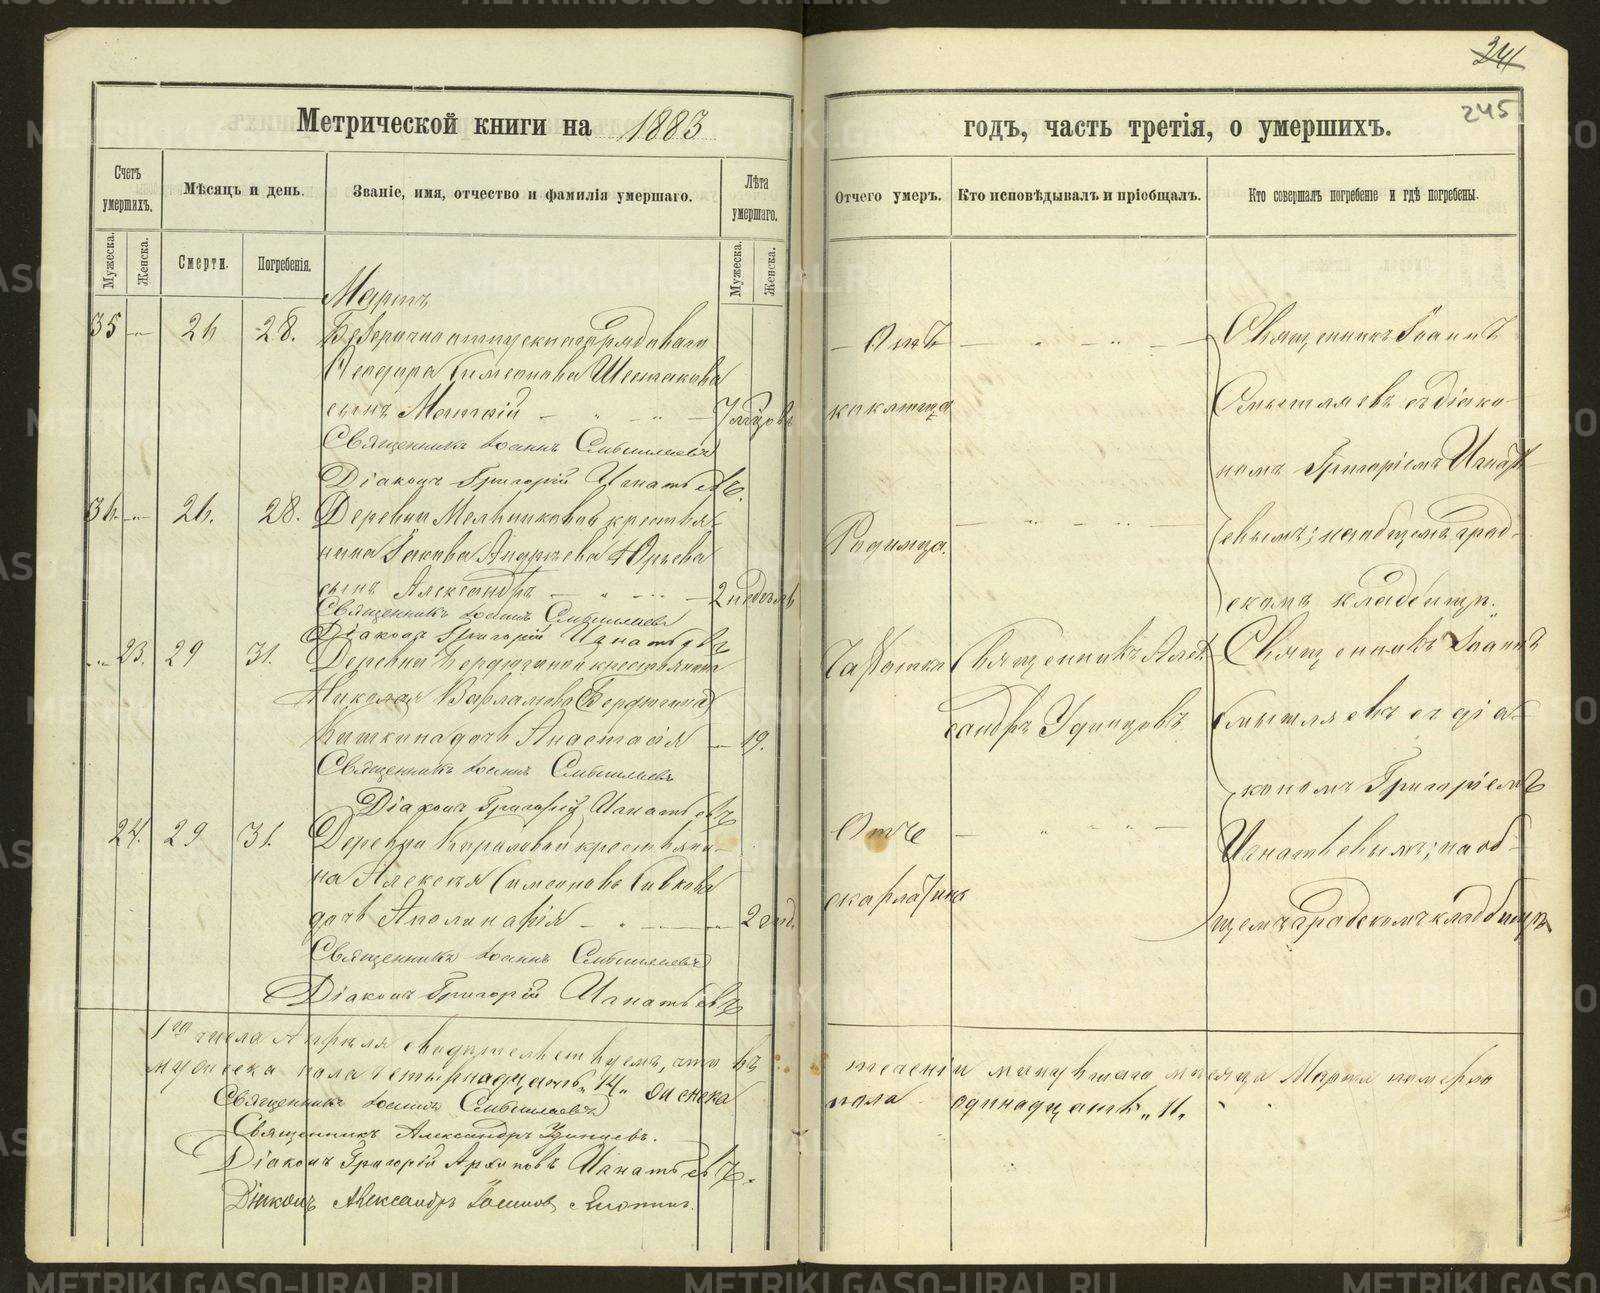 241
245
Метрической книги на 1883
годъ, часть третія, о умершихъ.
Счетъ умершихъ.
Мѣсяцъ и день.
Званіе, имя, отчество и фамилія умершаго.
Лѣта умершаго.
Отчего умеръ.
Кто исповѣдывалъ и пріобщалъ.
Кто совершалъ погребеніе и гдѣ погребены.
Мужеска.
Женска.
Смерти.
Погребенія.
Мужеска.
Женска.
Мартъ
35 26 28.
рядоваго
Ѳеодора Симеонова Шестакова
сынъ Матѳій
Священникъ Іоаннъ Смышляевъ
Діаконъ Григорій Игнатьевъ.
Отъ
Священникъ Іоаннъ
Смышляевъ съ діако-
номъ Григоріемъ Игнать-
евымъ; на общемъ град-
скомъ кладбищѣ.
36 26. 28. Деревни Мельниковой крестья-
нина Іакова Андреева Юрьева
сынъ Александръ 2 недѣль
Родимца.
Священникъ Іоаннъ Смышляевъ
Діаконъ Григорій Игнатьевъ
23. 29 31. Деревни Бердюгиной крестьянина
Николая Варламова (Бердюгина)
дочь Анастасія 19.
Священникъ Іоаннъ Смышляевъ
Діаконъ Григорій Игнатьевъ
Чахотки
Священникъ Алек-
сандръ Удинцовъ
Священникъ Іоаннъ
Смышляевъ съ діа-
кономъ Григоріемъ
Игнатьевымъ; на об-
щемъ градскомъ кладбищѣ
24. 29 31. Деревни Кириловой крестьяни-
на Алексѣя Симеонова Сивкова
дочь Аполинарія 2
Священникъ Іоаннъ Смышляевъ
Діаконъ Григорій Игнатьевъ
Отъ
скарлатины
1го числа Апрѣля свидѣтельствуемъ, что въ теченіи минувшаго мѣсяца Марта померло
мужеска пола четырнадцать „14„ женска пола одинадцать „11„
Священникъ Іоаннъ Смышляевъ
Священникъ Александръ Удинцевъ.
Діаконъ Григорій Архиповъ Игнатьевъ.
Діаконъ Александръ
METRIKI.GASO-URAL.RU